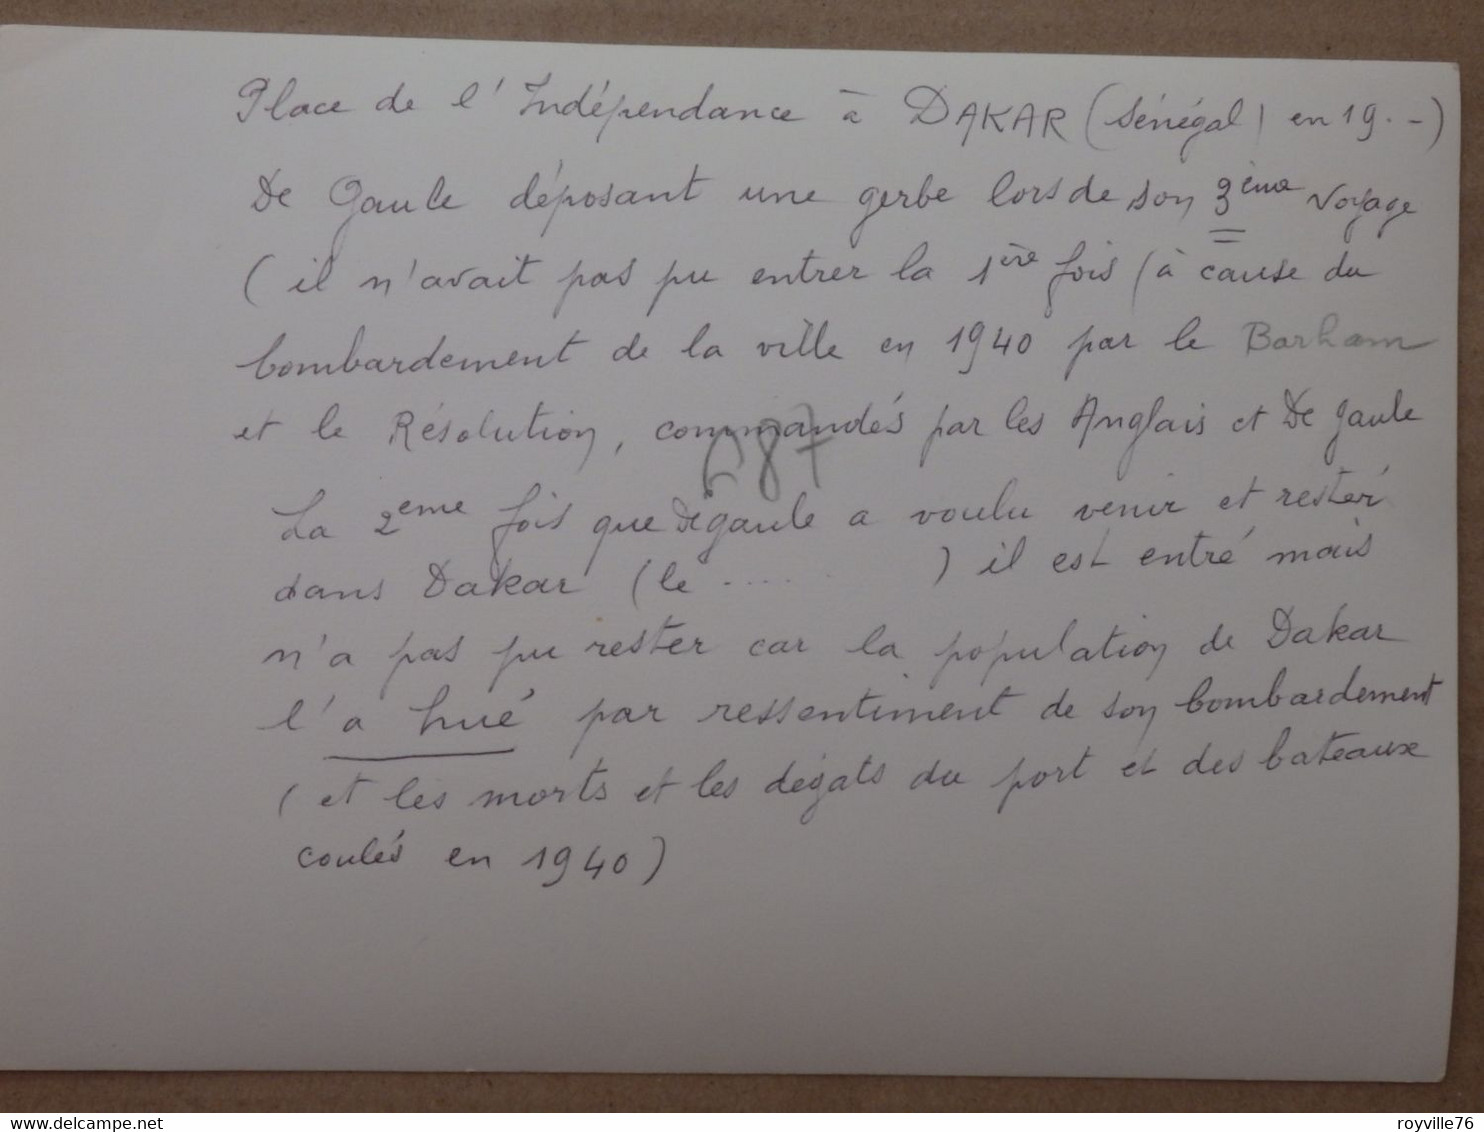 Place de l'Indépendance à DAKAR (Sénégal) en 19.-)
De Gaule déposant une gerbe lors de son 3ème voyage
(il n'avait pas pu entrer la 1ère fois (à cause du
bombardement de la ville en 1940 par le Barham
et le Résolution, commandés par les Anglais et De Gaule
687
La 2eme fois que De gaule a voulu venir et rester
dans Dakar (le ...... ) il est entré mais
n'a pas pu rester car la population de Dakar
l'a hué par ressentiment de son bombardement
(et les morts et les dégats du port et des bateaux
coulés en 1940)
delcampe.net
royville76